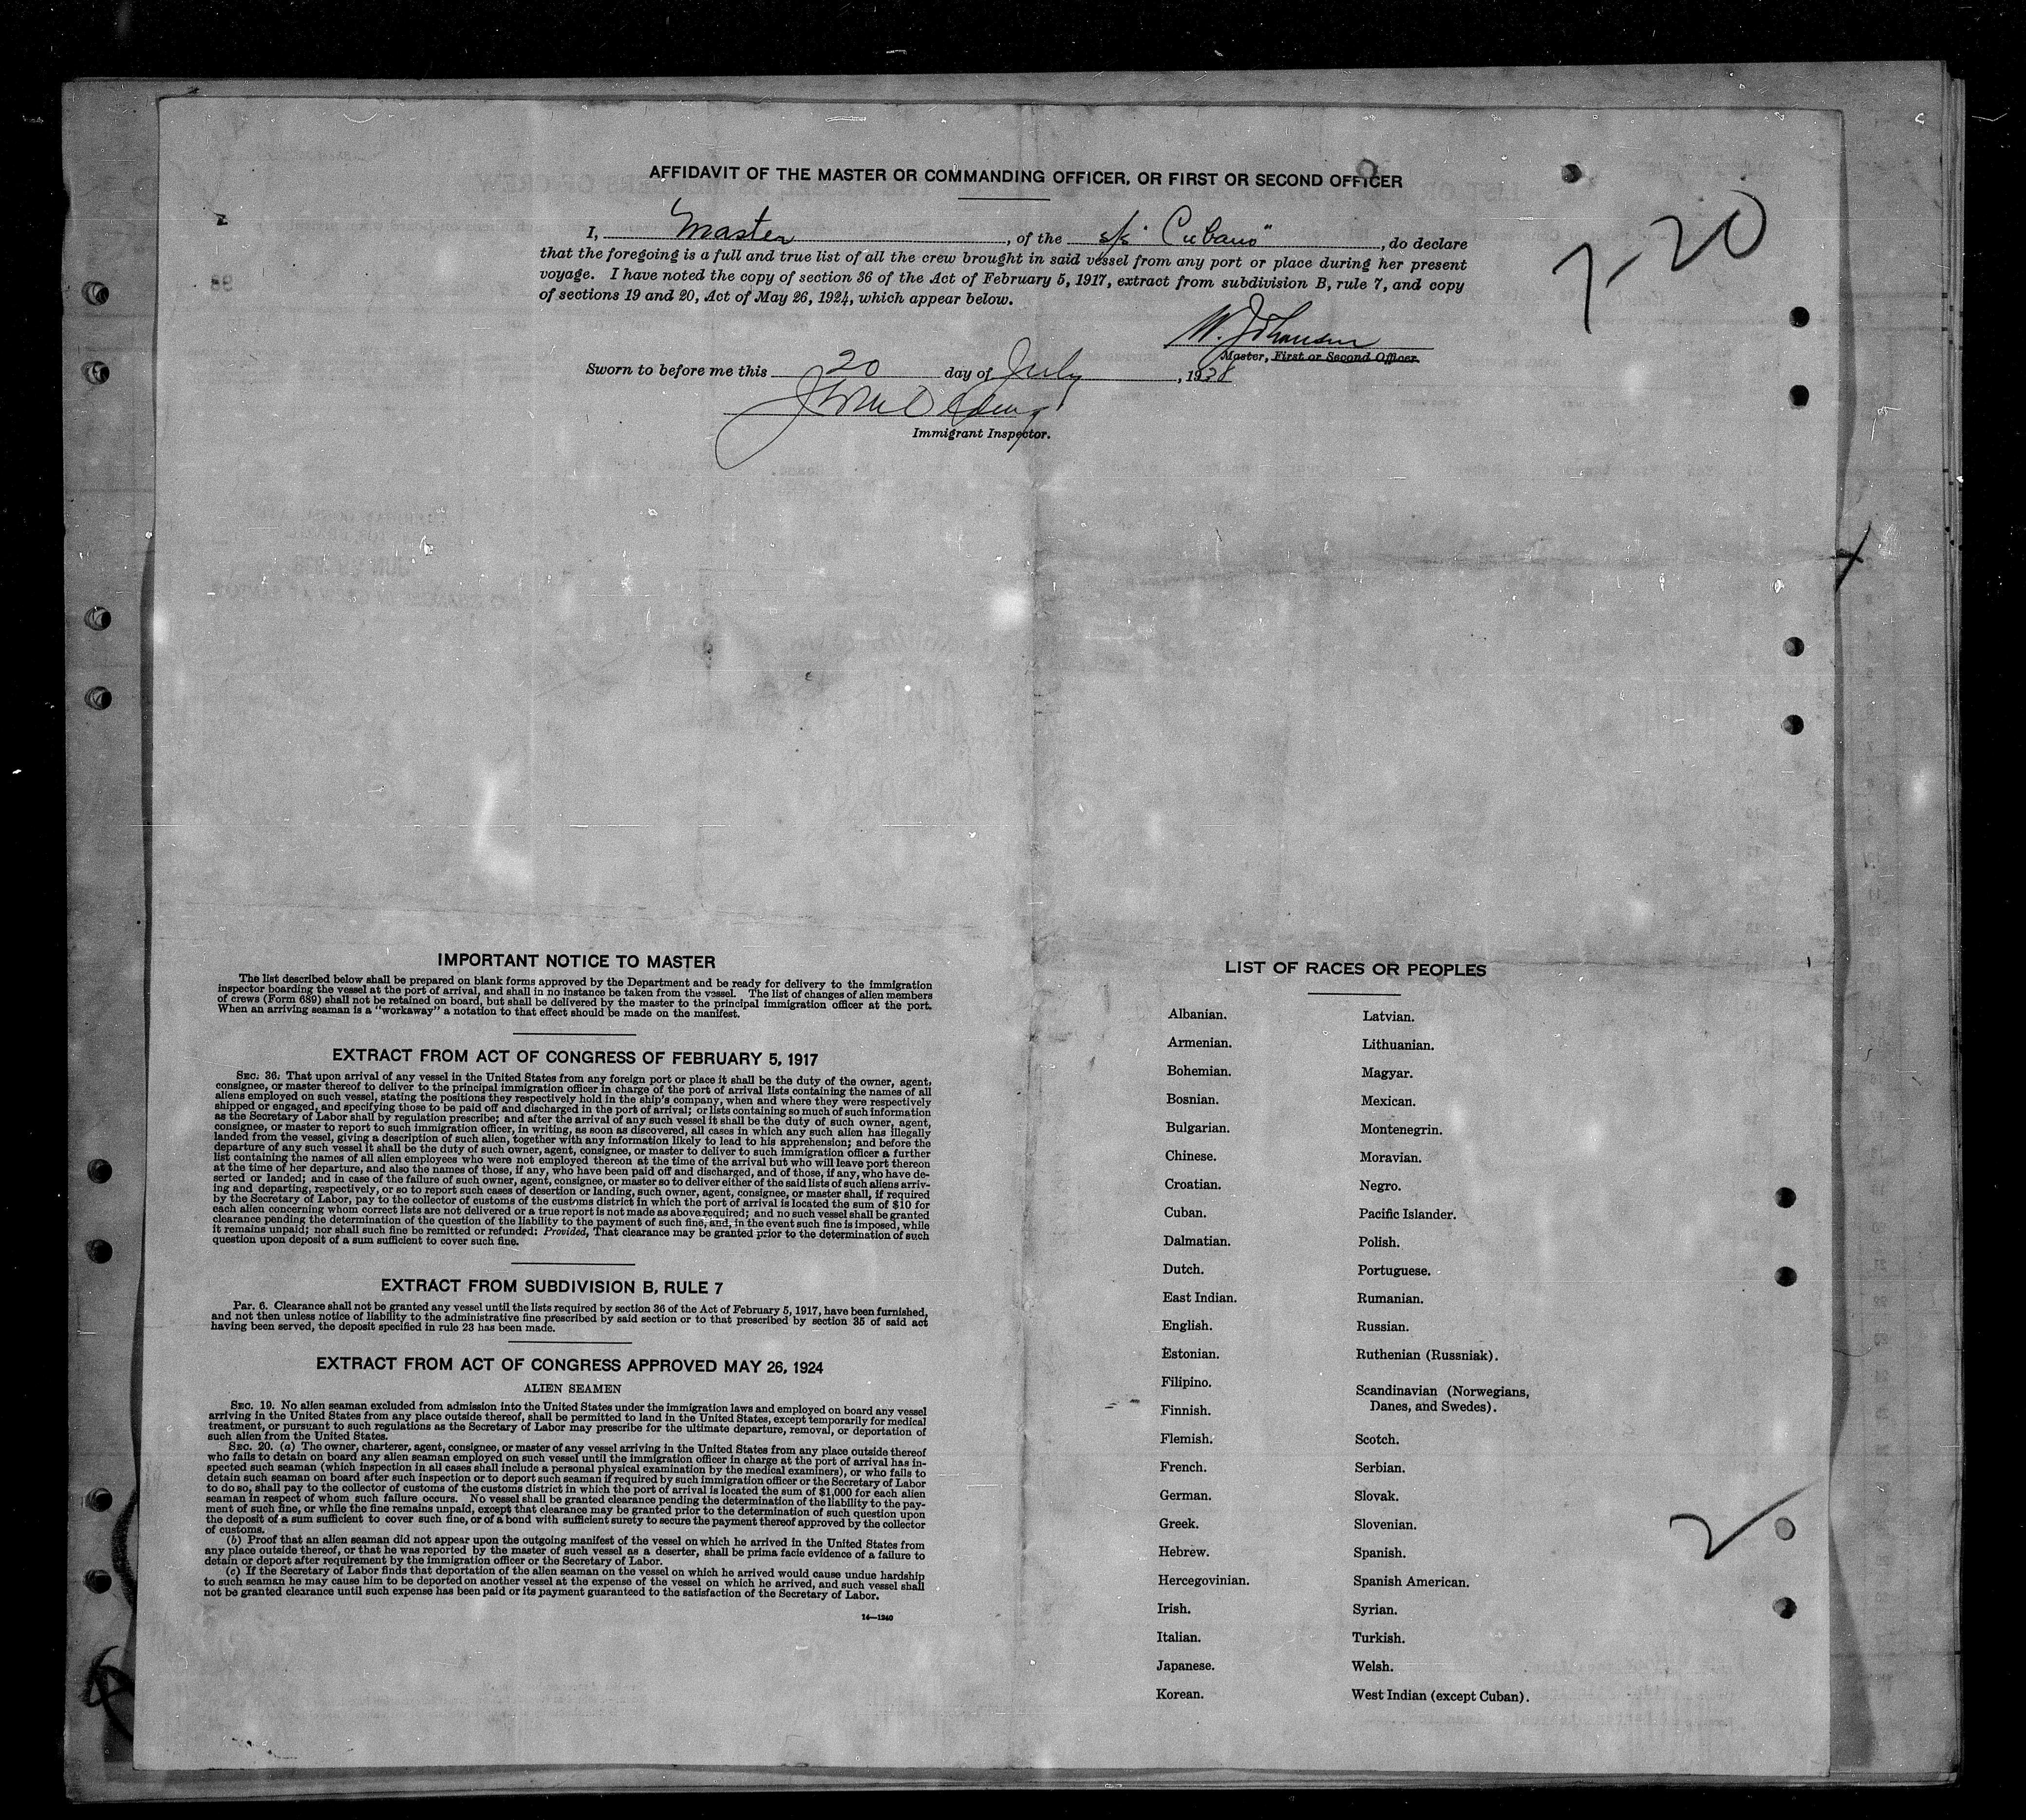 AFFIDAVIT OF THE MASTER OR COMMANDING OFFICER, OR FIRST OR SECOND OFFICER
I, Master, of the s/s "Cubano", do declare
that the foregoing is a full and true list of all the crew brought in said vessel from any port or place during her present
voyage. I have noted the copy of section 36 of the Act of February 5, 1917, extract from subdivision B, rule 7, and copy
of sections 19 and 20, Act of May 26, 1924, which appear below.
7-20
W. Johansen
Master, First or Second Officer.
Sworn to before me this 20 day of July, 1938
Immigrant Inspector.
IMPORTANT NOTICE TO MASTER
The list described below shall be prepared on blank forms approved by the Department and be ready for delivery to the immigration
inspector boarding the vessel at the port of arrival, and shall in no instance be taken from the vessel. The list of changes of alien members
of crews (Form 689) shall not be retained on board, but shall be delivered by the master to the principal immigration officer at the port.
When an arriving seaman is a "workaway" a notation to that effect should be made on the manifest.
EXTRACT FROM ACT OF CONGRESS OF FEBRUARY 5, 1917
SEC. 36. That upon arrival of any vessel in the United States from any foreign port or place it shall be the duty of the owner, agent,
consignee, or master thereof to deliver to the principal immigration officer in charge of the port of arrival lists containing the names of all
aliens employed on such vessel, stating the positions they respectively hold in the ship's company, when and where they were respectively
shipped or engaged, and specifying those to be paid off and discharged in the port of arrival; or lists containing so much of such information
as the Secretary of Labor shall by regulation prescribe; and after the arrival of any such vessel it shall be the duty of such owner, agent,
consignee, or master to report to such immigration officer, in writing, as soon as discovered, all cases in which any such alien has illegally
landed from the vessel, giving a description of such alien, together with any information likely to lead to his apprehension; and before the
departure of any such vessel it shall be the duty of such owner, agent, consignee, or master to deliver to such immigration officer a further
list containing the names of all alien employees who were not employed thereon at the time of the arrival but who will leave port thereon
at the time of her departure, and also the names of those, if any, who have been paid off and discharged, and of those, if any, who have de-
serted or landed; and in case of the failure of such owner, agent, consignee, or master so to deliver either of the said lists of such aliens arriv-
ing and departing, respectively, or so to report such cases of desertion or landing, such owner, agent, consignee, or master shall, if required
by the Secretary of Labor, pay to the collector of customs of the customs district in which the port of arrival is located the sum of $10 for
each alien concerning whom correct lists are not delivered or a true report is not made as above required; and no such vessel shall be granted
clearance pending the determination of the question of the liability to the payment of such fine, and, in the event such fine is imposed, while
it remains unpaid; nor shall such fine be remitted or refunded: Provided, That clearance may be granted prior to the determination of such
question upon deposit of a sum sufficient to cover such fine.
EXTRACT FROM SUBDIVISION B, RULE 7
Par. 6. Clearance shall not be granted any vessel until the lists required by section 36 of the Act of February 5, 1917, have been furnished,
and not then unless notice of liability to the administrative fine prescribed by said section or to that prescribed by section 35 of said act
having been served, the deposit specified in rule 23 has been made.
EXTRACT FROM ACT OF CONGRESS APPROVED MAY 26, 1924
ALIEN SEAMEN
SEC. 19. No alien seaman excluded from admission into the United States under the immigration laws and employed on board any vessel
arriving in the United States from any place outside thereof, shall be permitted to land in the United States, except temporarily for medical
treatment, or pursuant to such regulations as the Secretary of Labor may prescribe for the ultimate departure, removal, or deportation of
such alien from the United States.
SEC. 20. (a) The owner, charterer, agent, consignee, or master of any vessel arriving in the United States from any place outside thereof
who fails to detain on board any alien seaman employed on such vessel until the immigration officer in charge at the port of arrival has in-
spected such seaman (which inspection in all cases shall include a personal physical examination by the medical examiners), or who fails to
detain such seaman on board after such inspection or to deport such seaman if required by such immigration officer or the Secretary of Labor
to do so, shall pay to the collector of customs of the customs district in which the port of arrival is located the sum of $1,000 for each alien
seaman in respect of whom such failure occurs. No vessel shall be granted clearance pending the determination of the liability to the pay-
ment of such fine, or while the fine remains unpaid, except that clearance may be granted prior to the determination of such question upon
the deposit of a sum sufficient to cover such fine, or of a bond with sufficient surety to secure the payment thereof approved by the collector
of customs.
(b) Proof that an alien seaman did not appear upon the outgoing manifest of the vessel on which he arrived in the United States from
any place outside thereof, or that he was reported by the master of such vessel as a deserter, shall be prima facie evidence of a failure to
detain or deport after requirement by the immigration officer or the Secretary of Labor.
(c) If the Secretary of Labor finds that deportation of the alien seaman on the vessel on which he arrived would cause undue hardship
to such seaman he may cause him to be deported on another vessel at the expense of the vessel on which he arrived, and such vessel shall
not be granted clearance until such expense has been paid or its payment guaranteed to the satisfaction of the Secretary of Labor.
14—1240
LIST OF RACES OR PEOPLES
Albanian.
Armenian.
Bohemian.
Bosnian.
Bulgarian.
Chinese.
Croatian.
Cuban.
Dalmatian.
Dutch.
East Indian.
English.
Estonian.
Filipino.
Finnish.
Flemish.
French.
German.
Greek.
Hebrew.
Hercegovinian.
Irish.
Italian.
Japanese.
Korean.
Latvian.
Lithuanian.
Magyar.
Mexican.
Montenegrin.
Moravian.
Negro.
Pacific Islander.
Polish.
Portuguese.
Rumanian.
Russian.
Ruthenian (Russniak).
Scandinavian (Norwegians,
Danes, and Swedes).
Scotch.
Serbian.
Slovak.
Slovenian.
Spanish.
Spanish American.
Syrian.
Turkish.
Welsh.
West Indian (except Cuban).